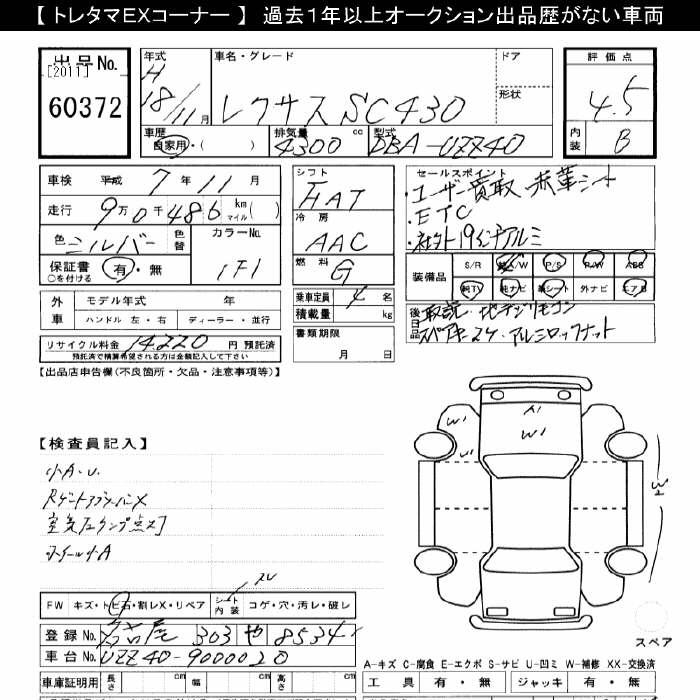 【 トレタマEXコーナー 】 過去1年以上オークション出品歴がない車両
出品No.
[2011]
60372
年式
H
18/11月
車名・グレード
レクサス SC430
ドア
形状
評価点
4.5
内装
B
車歴
自家用・( )
排気量 cc
4300
型式
DBA-UZZ40
車検 平成 7年 11月
走行 9万0千486 km マイル( )
色 シルバー 色替
カラーNo.
1F1
保証書 有・無
○を付ける
外車
モデル年式 年
ハンドル 左・右 ディーラー・並行
リサイクル料金 14220 円 預託済
預託済で精算希望される方は金額記入して下さい
シフト
FAT
冷房
AAC
燃料
G
乗車定員 4 名
積載量 kg
書類期限
月 日
セールスポイント
・ユーザー買取 赤革シート
・ETC
・社外19インチアルミ
装備品
S/R A/W P/S P/W ABS
純TV 純ナビ 革シート 外ナビ エアB
後日品
取説・地デジリモコン
スペアキー2ケ・アルミロックナット
【出品店申告欄(不良箇所・欠品・注意事項等)】
【検査員記入】
小A・U
空気圧ランプ点灯
ホイール小A
FW キズ・トビ石・割レX・リペア シート内装 コゲ・穴・汚レ・破レ
登録No. 名古屋 303 や 8534
車台No. UZZ40-9000020
車庫証明用 長さ cm 幅 cm 高さ cm
W1
A1
W1
W2
スペア
A-キズ C-腐食 E-エクボ S-サビ U-凹ミ W-補修 XX-交換済
工具 有・無 ジャッキ 有・無